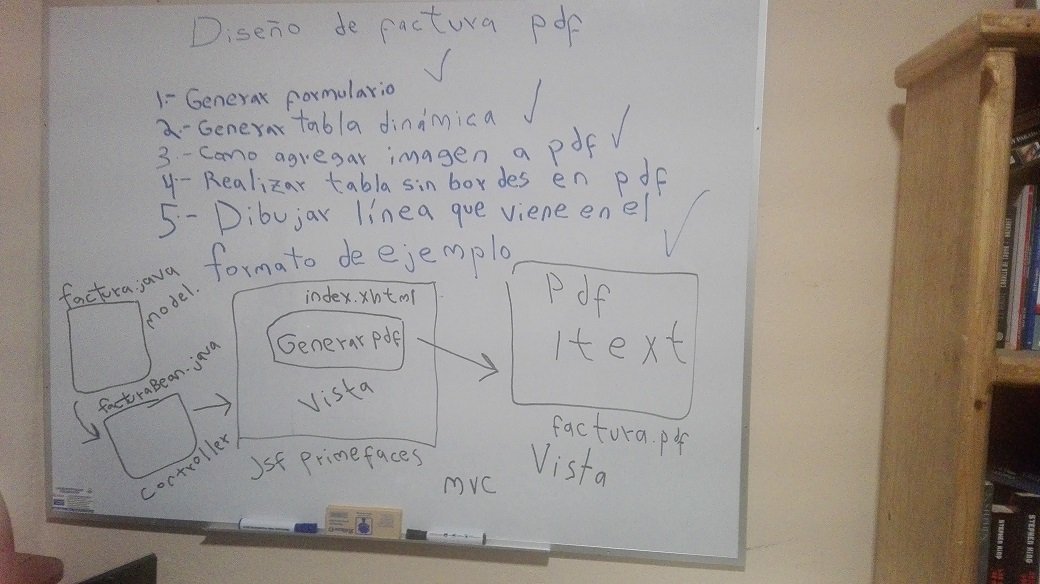 Diseño de factura pdf
1.- Generar formulario
2.- Generar tabla dinámica
3.- Como agregar imagen a pdf
4.- Realizar tabla sin bordes en pdf
5.- Dibujar línea que viene en el
formato de ejemplo
factura.java
model.
facturaBean.java
controller
index.xhtml
Generar pdf
vista
jsf primefaces
Pdf
Itext
factura.pdf
Vista
mvc
STEPHEN KING
STEPHEN KING